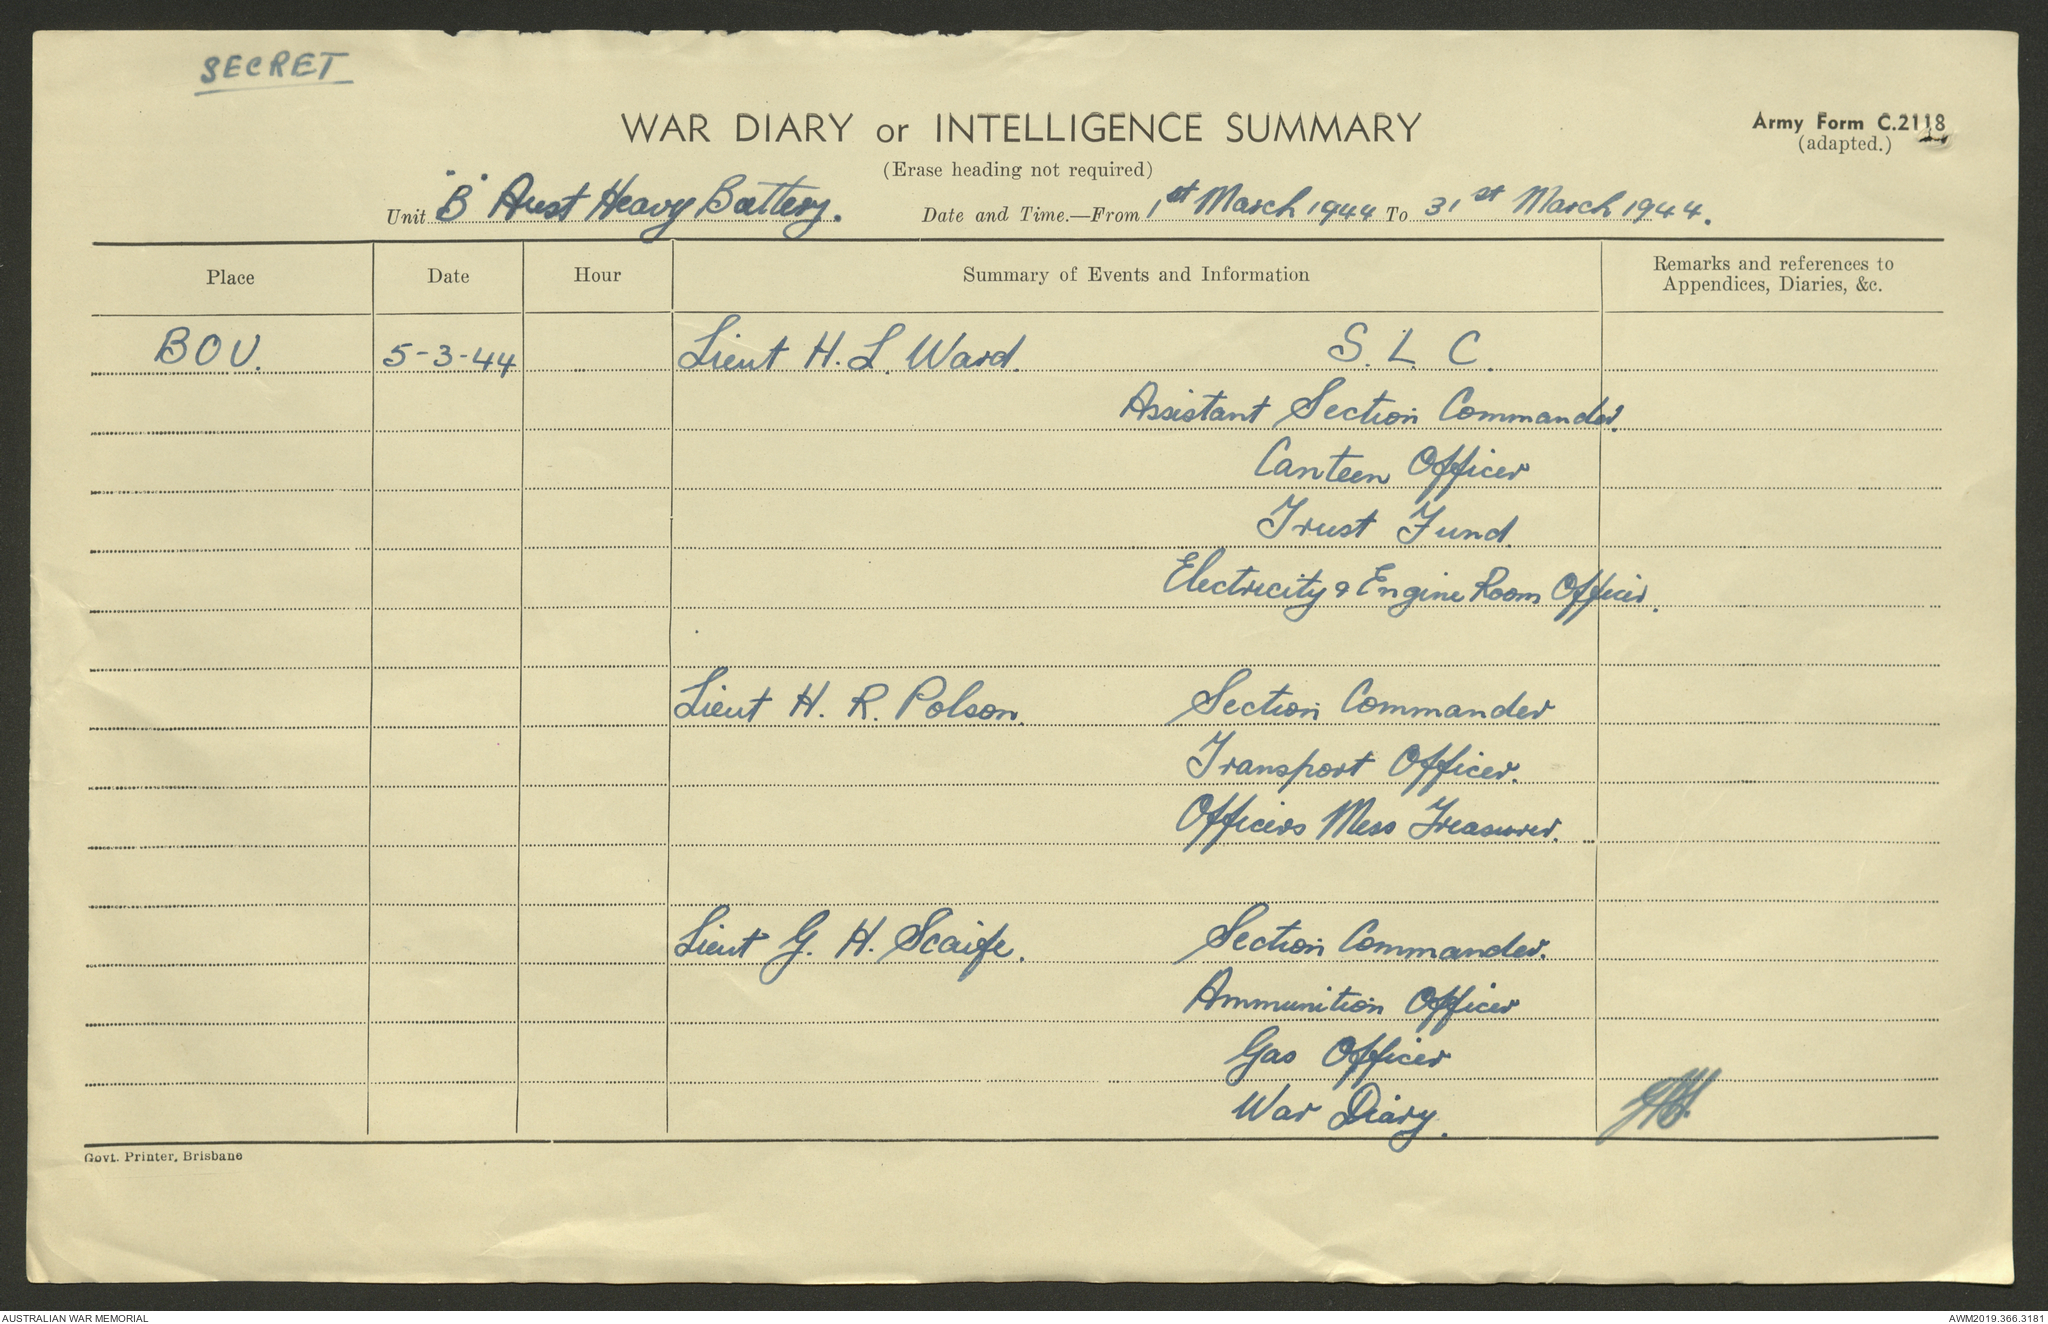 SECRET
WAR DIARY or INTELLIGENCE SUMMARY
Army Form C.2118
(adapted.)
(Erase heading not required)
Unit "B" Aust Heavy Battery. Date and Time.—From 1st March 1944 To 31st March 1944.
Place Date Hour Summary of Events and Information Remarks and references to
Appendices, Diaries, &c.
BOV. 5-3-44 Lieut H. L. Ward. S. L. C.
Assistant Section Commander.
Canteen Officer
Trust Fund
Electricity & Engine Room Officer.
Lieut H. R. Polson. Section Commander
Transport Officer.
Officers Mess Treasurer.
Lieut G. H. Scaife. Section Commander.
Ammunition Officer
Gas Officer
War Diary.
Govt. Printer, Brisbane
AUSTRALIAN WAR MEMORIAL
AWM2019.366.3181